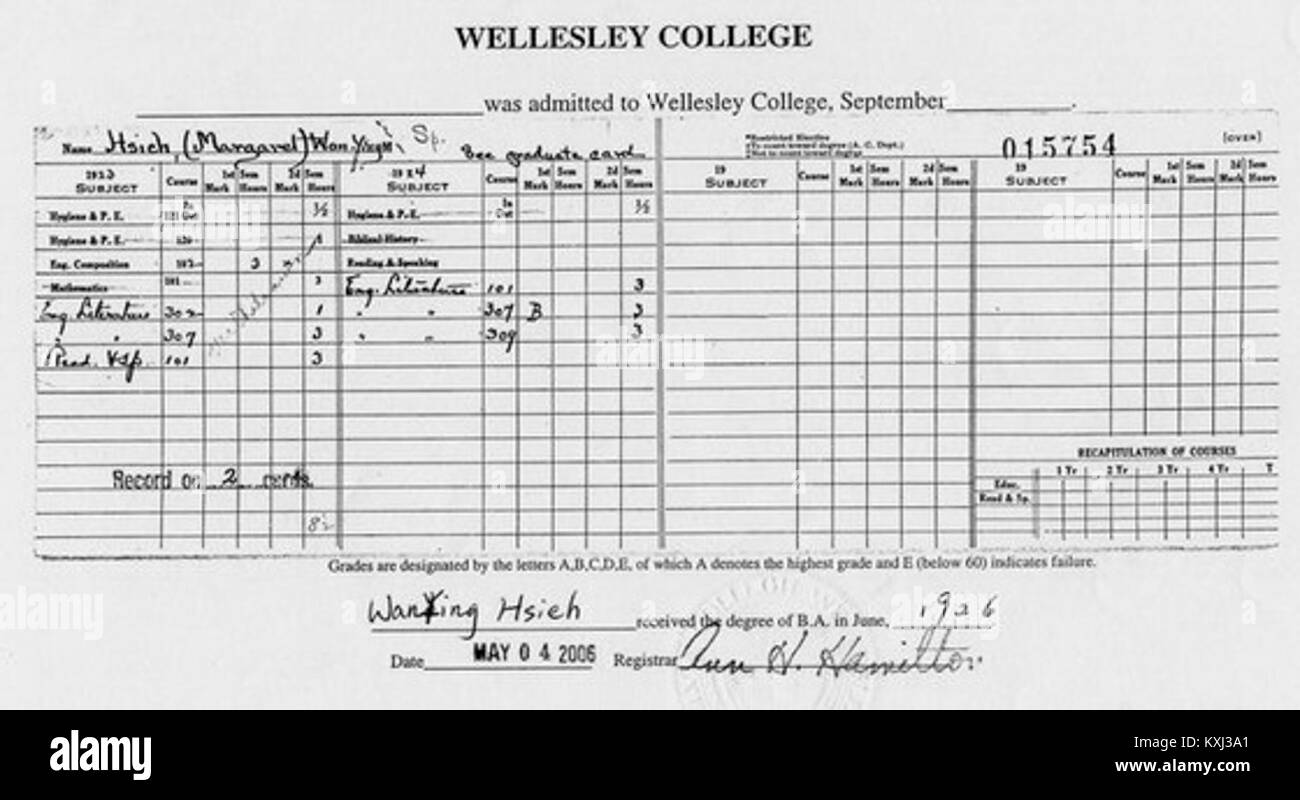 WELLESLEY COLLEGE
was admitted to Wellesley College, September .
Name Hsieh, (Margaret) Wan Ying Sp. See graduate card
*Restricted Elective
015754
[OVER]
1923 SUBJECT Course 1st Sem Mark Hours 2d Sem Mark Hours 1924 SUBJECT Course 1st Sem Mark Hours 2d Sem Mark Hours 19 SUBJECT Course 1st Sem Mark Hours 2d Sem Mark Hours 19 SUBJECT Course 1st Sem Mark Hours 2d Sem Mark Hours
Hygiene & P. E. 121 ½ Hygiene & P. E. ½
Hygiene & P. E. 120 1 Biblical History
Eng. Composition 102 3 Reading & Speaking
Mathematics 101 3 Eng. Literature 101 3
Eng Literature 302 1 " " 307 B 3
" " 307 3 " " 309 3
Read. & Sp. 101 3
RECAPITULATION OF COURSES
1 Yr 2 Yr 3 Yr 4 Yr T
Educ.
Read & Sp.
Record on 2 cards.
8½
Grades are designated by the letters A,B,C,D,E, of which A denotes the highest grade and E (below 60) indicates failure.
WanYing Hsieh received the degree of B.A. in June, 1926
Date MAY 04 2006 Registrar Ann H. Hamilton
alamy
Image ID: KXJ3A1
www.alamy.com